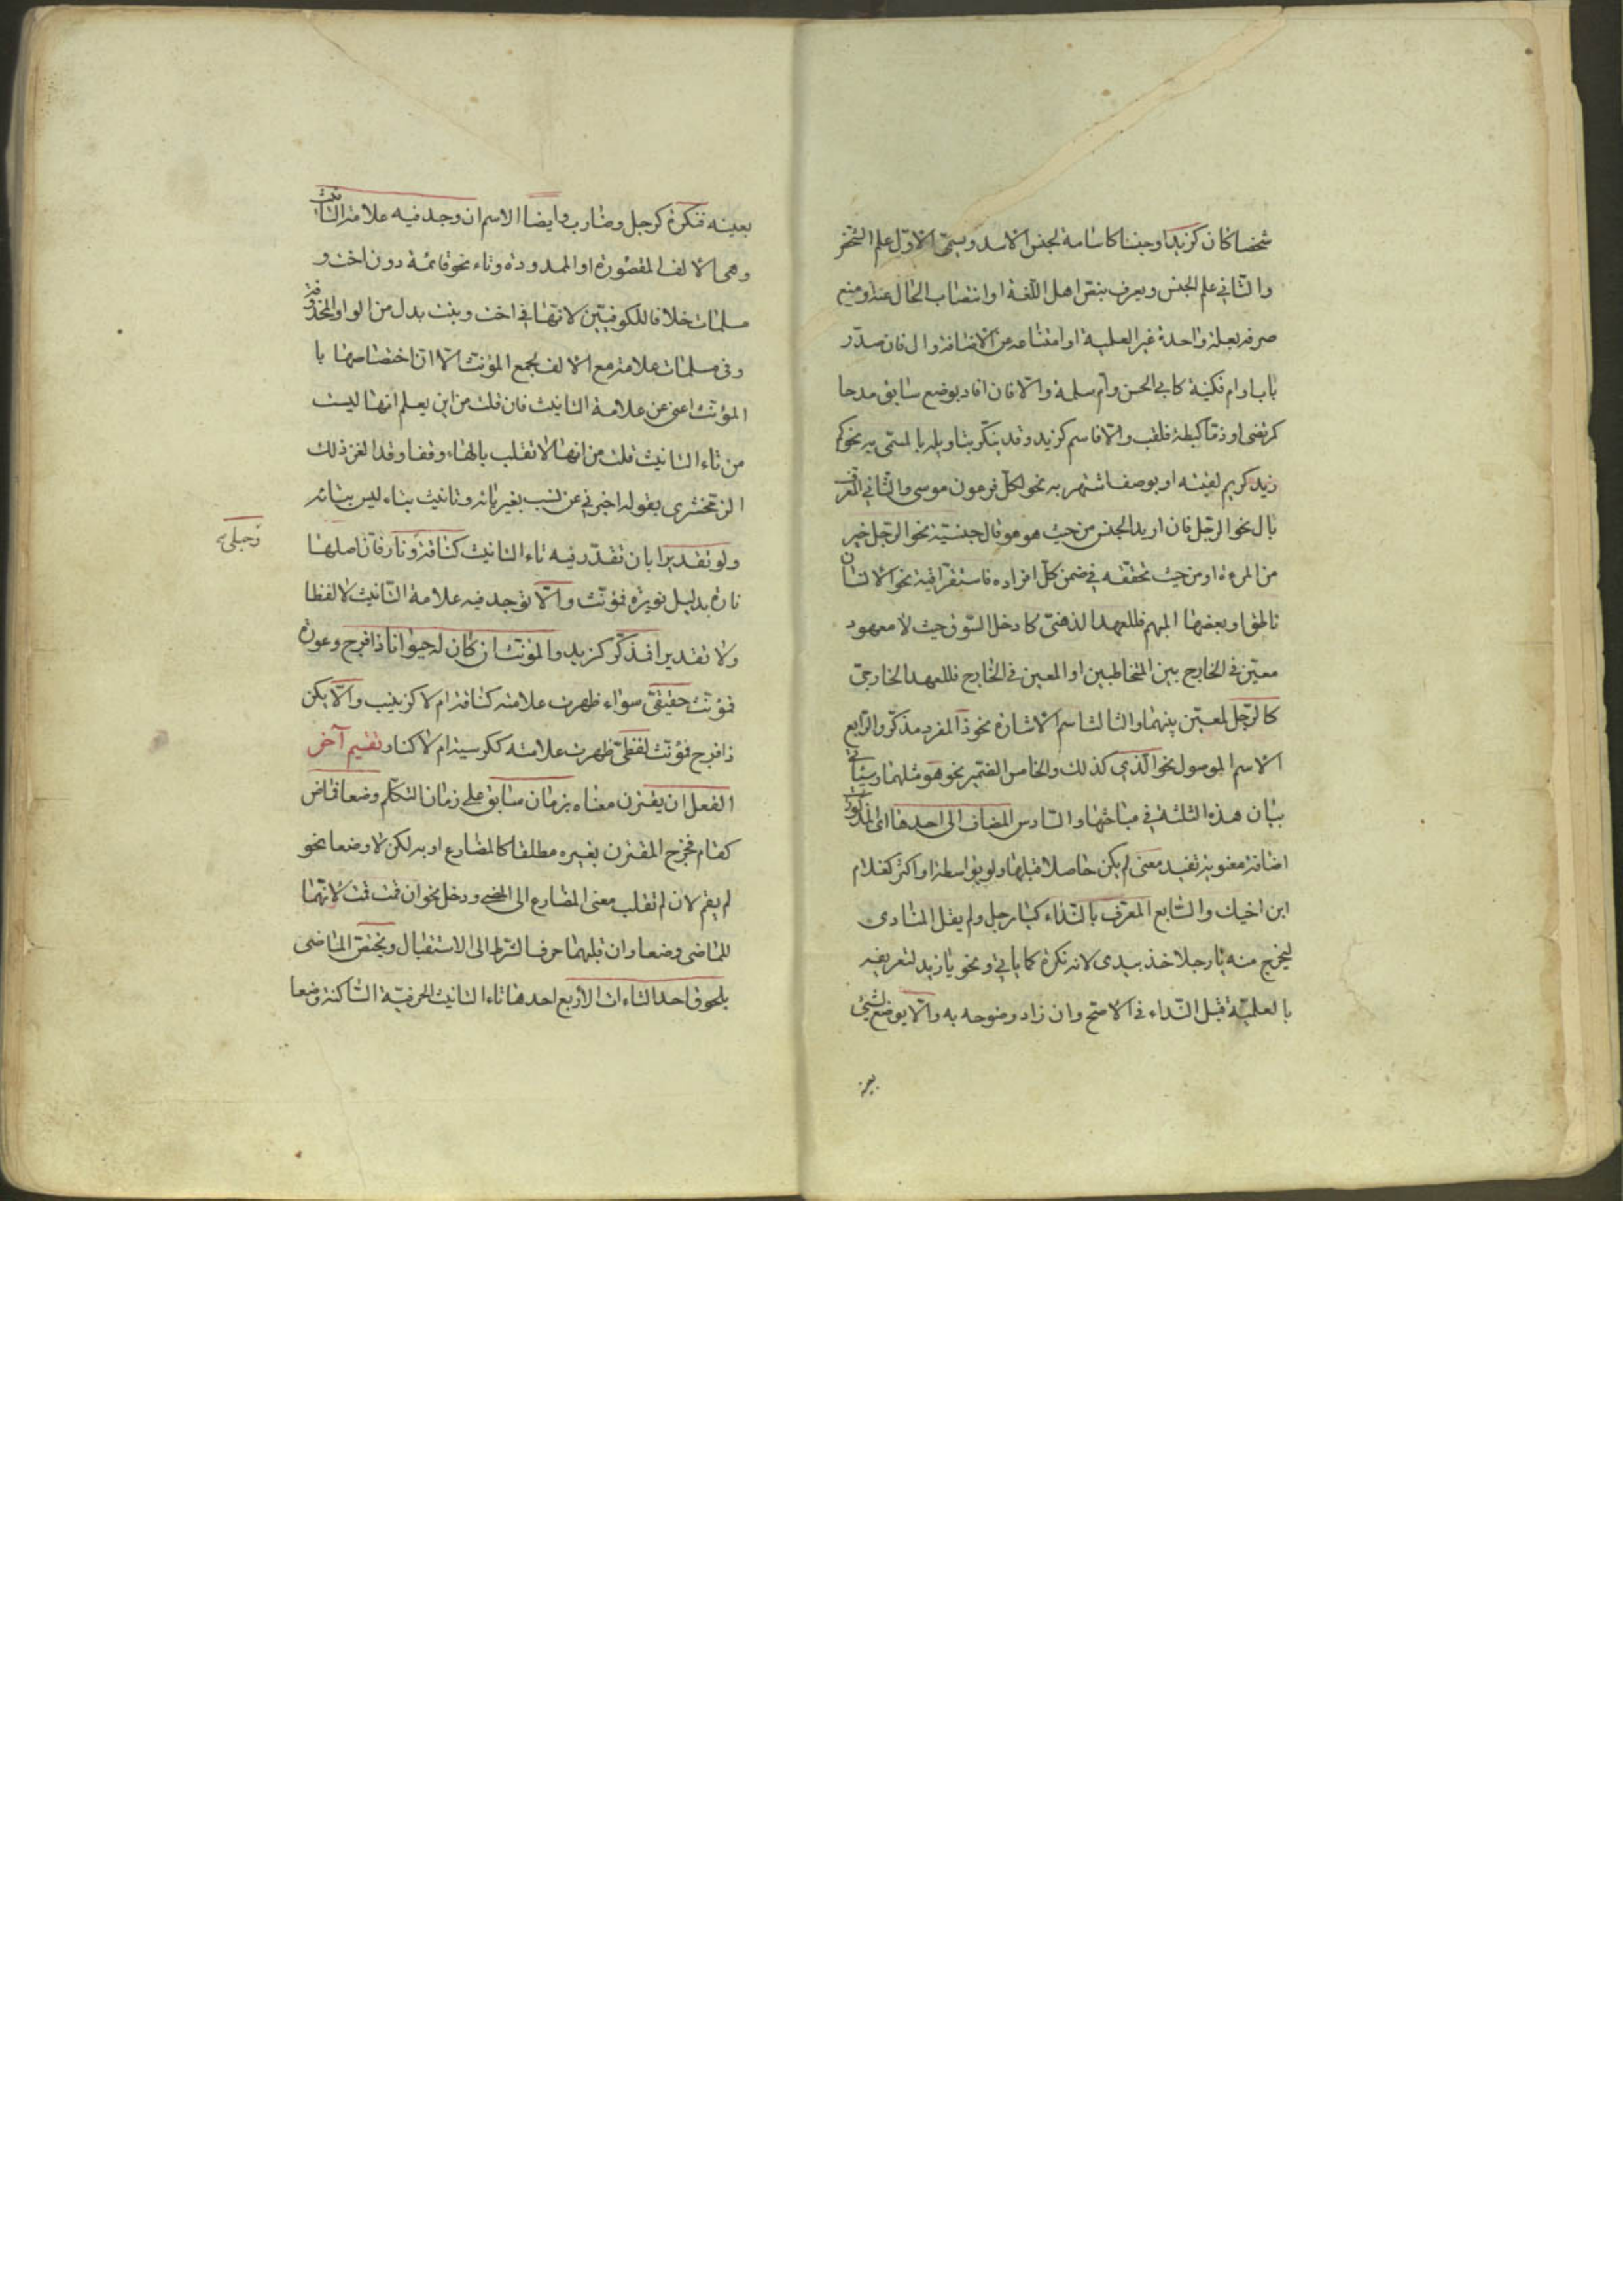 شخصا كان كزيد او جنسا كاسامة لجنس الاسد ويسمّى الاوّل علم الشخص
والثّاني علم الجنس ويعرف بنصّ اهل اللّغة او انتصاب الحال عنه او منع
صرفه بعلة واحدة غير العلمية او امتناعه من الاضافة وال فان صدّر
باب او ام فكنية كابي الحسن وام سلمة والا فان افاد بوضع سابق مدحا
كمرتضى او ذمّا كبطة فلقب والّا فاسم كزيد وقد ينكّر بتاويله بالمسمّى به نحو كم
زيد كريم لقيته او بوصف اشتهر به نحو لكلّ فرعون موسى والثّاني المعرّف
بال نحو الرّجل فان اريد الجنس من حيث هو هو فال جنسيّة نحو الرّجل خير
من المرءة او من حيث تحقّقه في ضمن كلّ افراده فاستغراقية نحو الانسان
ناطق او بعضها المبهم فللعهد الذهنيّ كادخل السّوق حيث لا معهود
معيّن في الخارج بين المتخاطبين او المعين في الخارج فللعهد الخارجيّ
كالرّجل لمعيّن بينهما والثالث اسم الاشارة نحو ذا لمفرد مذكّر والرّابع
الاسم الموصول نحو الّذي كذلك والخامس الضّمير نحو هو مثلهما وسياتي
بيان هذه الثلثة في مباحثها والسّادس المضاف الى احدها اى المذكورات
اضافة معنوية تفيد معنى لم يكن حاصلا قبلها ولو بواسطة او اكثر كغلام
ابن اخيك والسّابع المعرّف بالنّداء كيا رجل ولم يقل المنادى
ليخرج منه يا رجلا خذ بيدى لانه نكرة كما ياتي ونحو يا زيد لتعريفه
بالعلميّة قبل النّداء في الاصح وان زاد وضوحه به والّا يوضع لشيئ
بعينه
بعينه فنكرة كرجل وضارب وايضا الاسم ان وجد فيه علامة التانيث
وهى الالف المقصورة او الممدودة وتاء نحو قائمة دون اخت و
مسلمات خلافا للكوفيّين لانّها في اخت وبنت بدل من الواو المحذوفة
وفى مسلمات علامة مع الالف لجمع المؤنث الا انّ اختصاصها با
المؤنّث اغنى عن علامة التانيث فان قلت من اين يعلم انها ليست
من تاء التانيث قلت من انها لا تقلب بالهاء وقفا وقد الغز ذلك
الزمخشرى بقوله اخبرني عن نسب بغير يائه وتانيث بتاء ليس بتائه
ولو تقديرا بان تقدّر فيه تاء التانيث كناقة ونار فانّ اصلها
وحبلى
نارة بدليل نويرة فمؤنّث والّا توجد فيه علامة التّانيث لا لفظا
ولا تقديرا فمذكّر كزيد والمؤنّث ان كان له حيوانا ذا فرج وعورة
فمؤنّث حقيقيّ سواء ظهرت علامته كناقة ام لا كزينب والّا يكن
ذا فرج فمؤنّث لفظيّ ظهرت علامته ككرسيه ام لا كنار تقسيم آخر
الفعل ان يقترن معناه بزمان سابق على زمان التكلّم وضعا فماض
كقام فخرج المقترن بغيره مطلقا كالمضارع او به لكن لا وضعا نحو
لم يقم لان لم تقلب معنى المضارع الى المضي ودخل نحو ان قمت قمت لانّهما
للماضى وضعا وان قلبهما حرف الشرط الى الاستقبال ويختصّ الماضى
بلحوق احد التاءات الاربع احدها تاء التانيث الحرفيّة السّاكنة وضعا